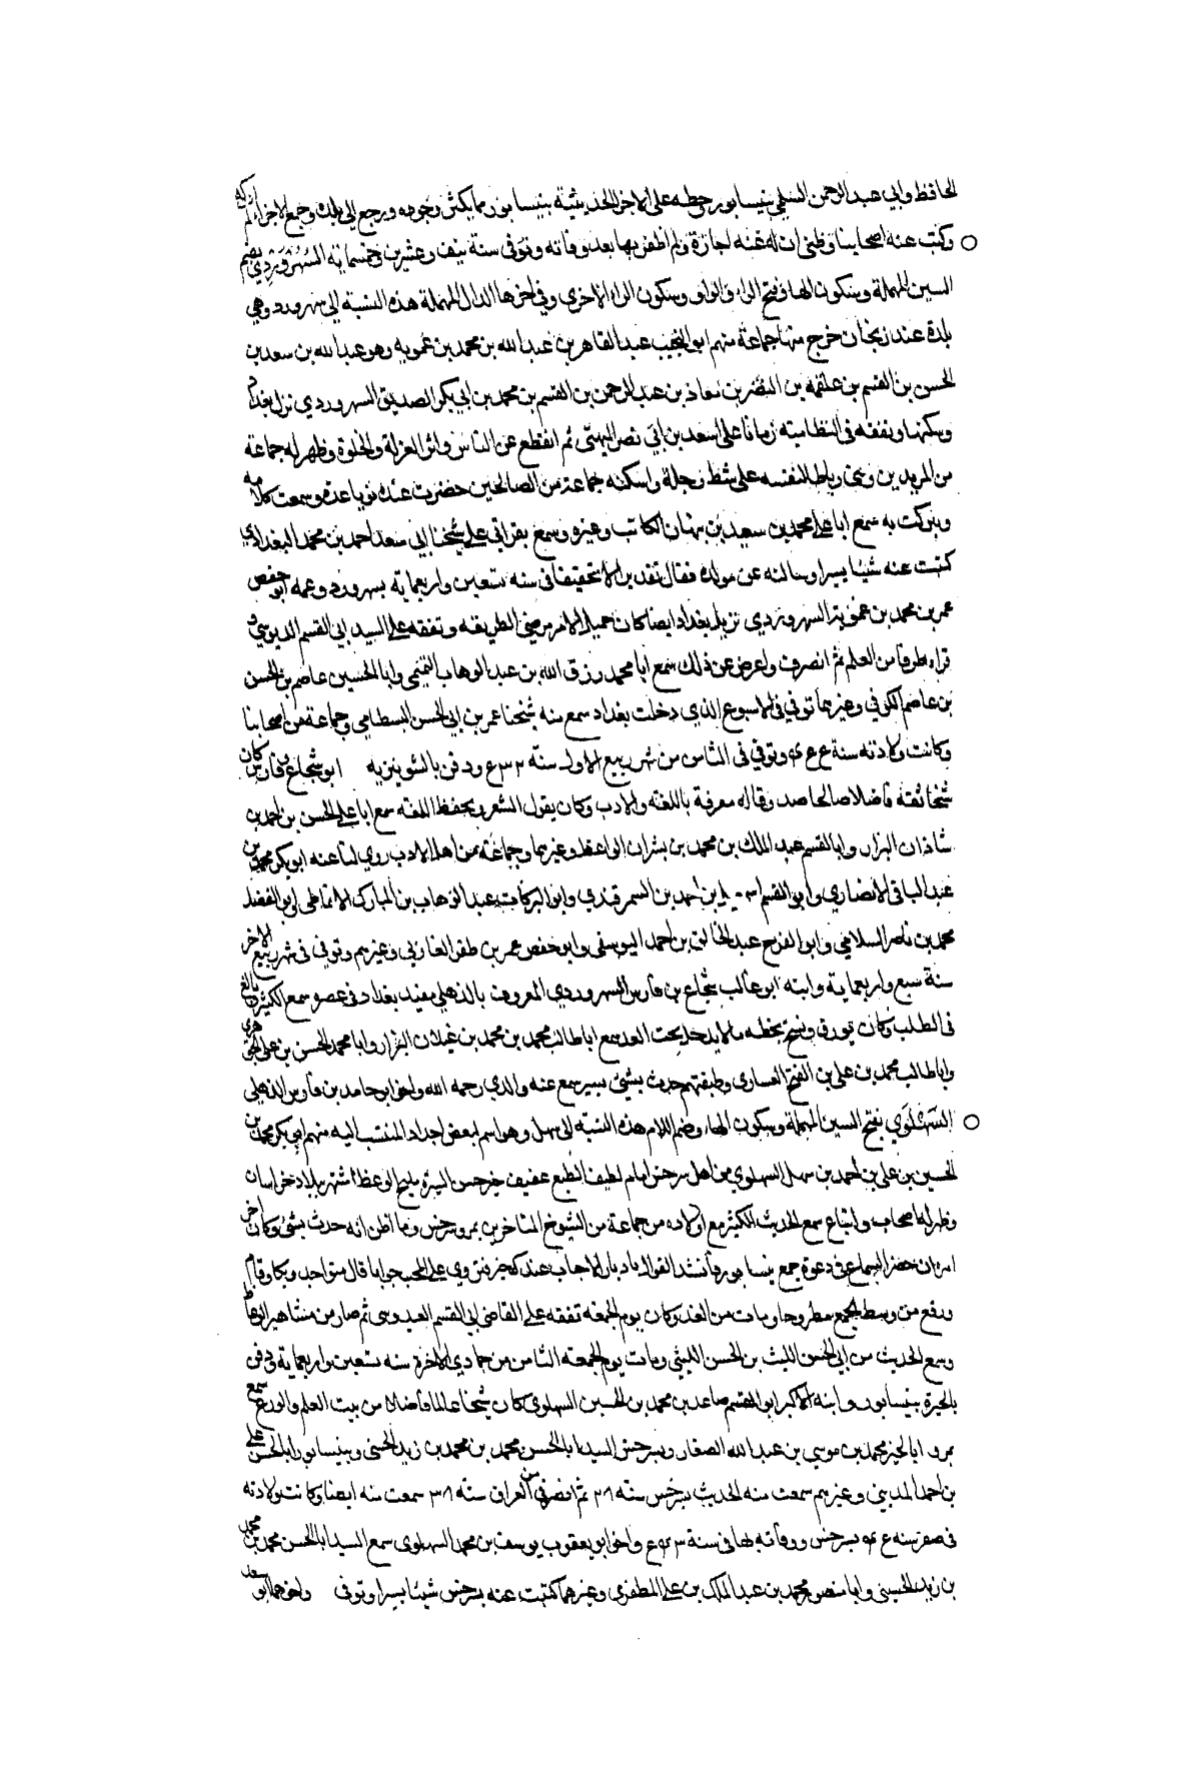 الحافظ وابي عبد الرحمن السلمي بنيسابور وخطه على الاجزا الحديثية بنيسابور مما يكثر وجوده ويرجع الى ذلك وجمع الاجزاء
وكتب عنه اصحابنا وظني ان لى عنه اجازة ولم اظفر بها بعد وفاته وتوفى سنة نيف وعشرين وخمسماية السُّهْرَوَرْدي بضم
السين المهملة وسكون الها وفتح الراء والواو وسكون الراء الاخرى وفي اخرها الدال المهملة هذه النسبة الى سهرورد وهي
بلدة عند زنجان خرج منها جماعة منهم ابو النجيب عبد القاهر بن عبد الله بن محمد بن عمويه وهو عبد الله بن سعد بن
الحسن بن القسم بن علقمة بن النضر بن معاذ بن عبد الرحمن بن القسم بن محمد بن ابي بكر الصديق السهروردي نزل بغداد
وسكنها وتفقه فى النظامية زمانا على اسعد بن ابي نصر الميهني ثم انقطع عن الناس واثر العزلة والخلوة وظهر له جماعة
من المريدين وبنى رباطا لنفسه على شط دجلة واسكنه جماعة من الصالحين حضرت عنده نوبا عدة وسمعت كلامه
وتبركت به سمع ابا على محمد بن سعيد بن نبهان الكاتب وغيره وسمع بقراتي على شيخنا ابي سعد احمد بن محمد البغدادي
كتبت عنه شيئا يسيرا وسالته عن مولده فقال تقديرا لا تحقيقا فى سنه تسعين واربعماية بسهرورد وعمه ابو حفص
عمر بن محمد بن عمويه السهروردي نزيل بغداد ايضا كان جميل الامر مرضي الطريقه وتفقه على السيد ابي القسم الدبوسي و
قراء طرفا من العلم ثم انصرف واعرض عن ذلك سمع ابا محمد رزق الله بن عبد الوهاب التميمى وابا الحسين عاصم بن الحسن
بن عاصم الكوفي وغيرهما توفي فى الاسبوع الذي دخلت بغداد سمع منه شيخنا عمر بن ابي الحسن البسطامي وجماعة من اصحابنا
وكانت ولادته سنة وتوفي فى الثامن من شهر ربيع الاول سنة ودفن بالشونيزيه ابو شجاع فارس كان
شيخا ثقة فاضلا صالحا وله معرفة باللغة والادب وكان يقول الشعر ويحفظ اللغه سمع ابا على الحسن بن احمد بن
شاذان البزار وابا القسم عبد الملك بن محمد بن بشران الواعظ وغيرهما وجماعة من اهل الادب روي لنا عنه ابو بكر محمد بن
عبد الباقى الانصاري وابو القسم بن احمد بن السمرقندي وابو البركات عبد الوهاب بن المبارك الانماطى وابو الفضل
محمد بن ناصر السلامي وابو الفرج عبد الخالق بن احمد اليوسفى وابو حفص عمر بن ظفر المغازلي وغيرهم وتوفي فى شهر ربيع الاخر
سنة سبع واربعماية وابنه ابو غالب شجاع بن فارس السهروردي المعروف بالذهلي مفيد بغداد فى عصره سمع الكثير وبالغ
فى الطلب وكان يورق ونسخ بخطه مالا يدخل تحت العد سمع ابا طالب محمد بن محمد بن غيلان البزار وابا محمد الحسن بن على الجوهري
وابا طالب محمد بن على بن الفتح العشارى وطبقتهم حدث بشيئ يسير سمع عنه والدي رحمه الله واخوه ابو حامد بن فارس الذهلى
السَّهْلُوَي بفتح السين المهملة وسكون الهاء وضم اللام هذه النسبة الى سهل وهو اسم لبعض اجداد المنتسب اليه منهم ابو بكر محمد بن
الحسين بن على بن احمد بن سهل السهلوي من اهل سرخس امام لطيف الطبع عفيف خير حسن السيرة مليح الوعظ اشتهر ببلاد خراسان
وظهر له اصحاب واتباع سمع الحديث الكثير مع اولاده من جماعة من الشيوخ المتاخرين بمرو وسرخس وما اظن انه حدث بشيئ وكان اخر
امره ان حضر السماع فى دعوة جمع بنيسابور فانشد القوال فقال متواجد وبكا وقام
ورفع من وسط الجمع مطروحا ومات من الغد وكان يوم الجمعة تفقه على القاضى ابي القسم العبدوسى ثم صار من مشاهير الوعاظ
وسمع الحديث من ابي الحسن الليث بن الحسن الليثي ومات يوم الجمعة الثامن من جمادي الاخرة سنه تسعين واربعماية ودفن
بالحيرة بنيسابور وابنه الاكبر ابو القسم صاعد بن محمد بن الحسين السهلوى كان شيخا عالما فاضلا من بيت العلم والورع سمع
بمرو ابا الخير محمد بن موسى بن عبد الله الصفار وبسرخس السيد ابا الحسن محمد بن محمد بن زيد الحسنى وبنيسابور ابا الحسن على
بن احمد المديني وغيرهم سمعت منه الحديث بسرخس سنه ٢٨ ثم انصرفي من العراق سنه ٣٨ سمعت منه ايضا وكانت ولادته
فى صفر سنه بسرخس ووفاته بها فى سنة واخوه ابو يعقوب يوسف بن محمد السهلوى سمع السيد ابا الحسن محمد بن محمد
بن زيد الحسينى وابا منصور محمد بن عبد الملك بن على المظفرى وغيرهما كتبت عنه بسرخس شيئا يسيرا وتوفى واخوهما ابو سعد